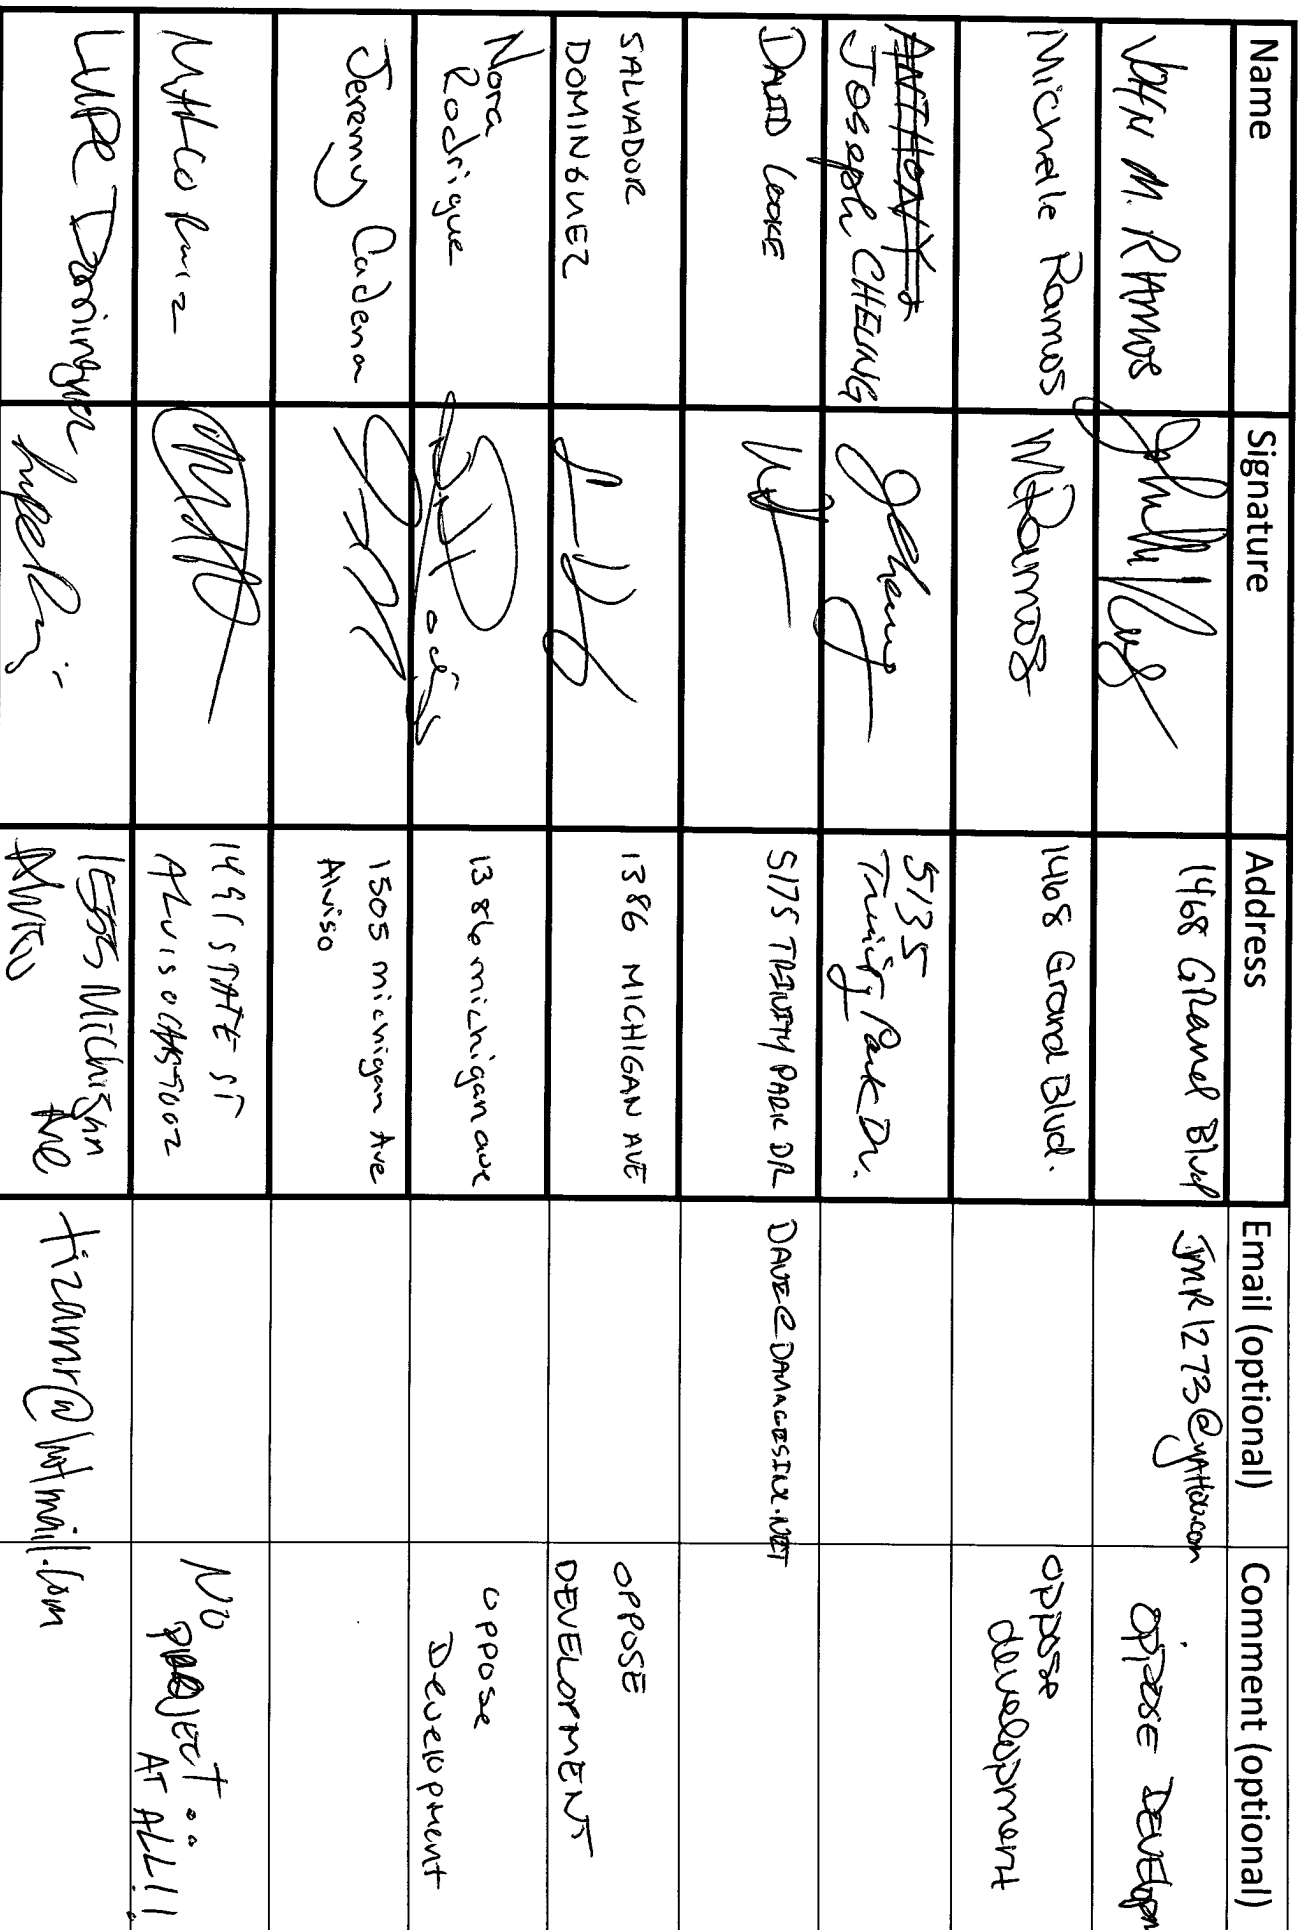 Name Signature Address Email (optional) Comment (optional)
JOHN M. RAMOS 1468 GRand Blvd JMR1273@yAHoo.com OPPOSE DEVElopm
Michelle Ramos MRamos 1468 Grand Blvd. oppose
development
ANTHONY
Joseph CHEUNG JCheung 5135
Trinity Park Dr.
DAVID COOKE 5175 TRINITY PARK DR DAVE@DAMAGESINC.NET
SALVADOR
DOMINGUEZ 1386 MICHIGAN AVE OPPOSE
DEVELOPMENT
Nora
Rodrigue 1386 michigan ave oppose
Development
Jeremy Cadena 1505 michigan Ave
Alviso
Ruiz 1491 STATE ST
ALVISO CA 95002 No
PROJECT
AT ALL!!!
LUPE Dominguez Lupe 1505 Michigan
Ave
Alviso tizamr@hotmail.com